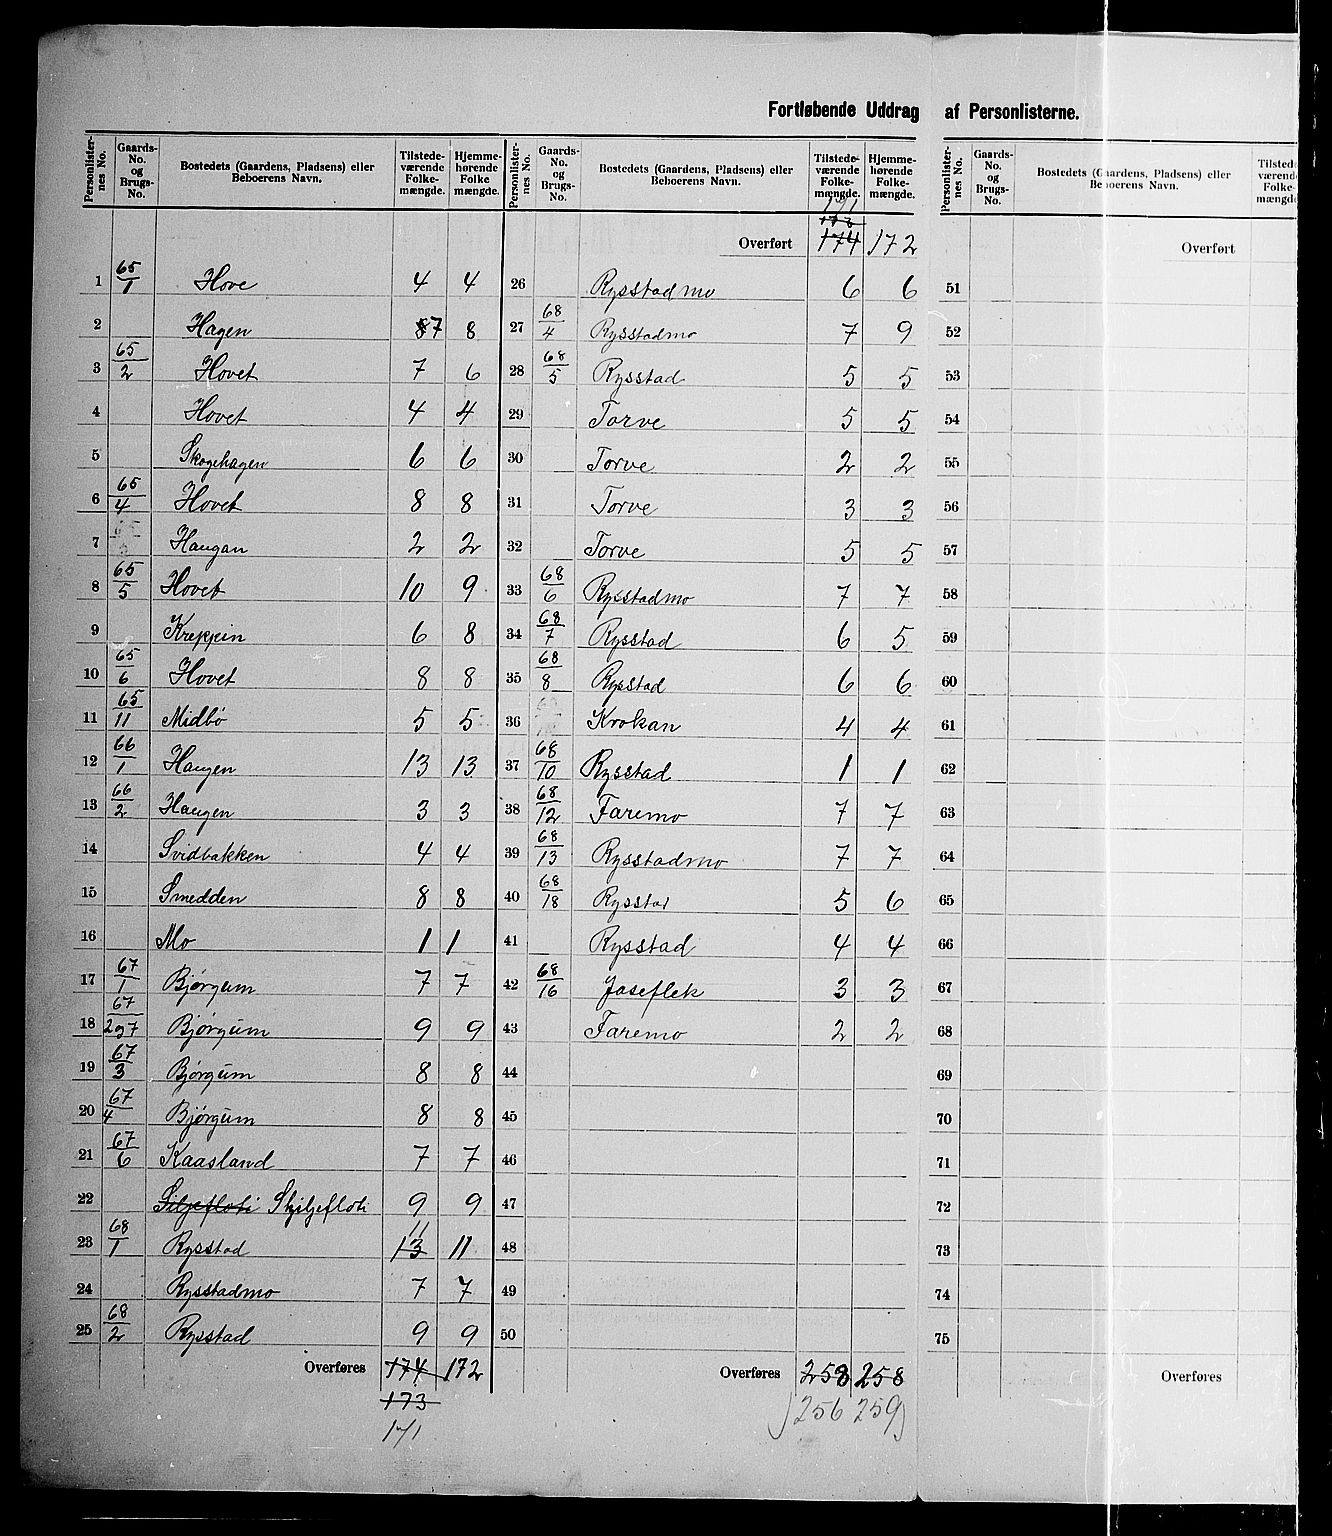 Fortløbende Uddrag af Personlisterne.
Personlister-nes No. | Gaards-No. og Brugs-No. | Bostedets (Gaardens, Pladsens) eller Beboerens Navn. | Tilstede-værende Folke-mængde. | Hjemme-hørende Folke mængde.
1 65/1 Hove 4 4
2 Hagen 8 7 8
3 65/2 Hovet 7 6
4 Hovet 4 4
5 Skogehagen 6 6
6 65/4 Hovet 8 8
7 Haugan 2 2
8 65/5 Hovet 10 9
9 Kreppin 6 8
10 65/6 Hovet 8 8
11 65/11 Midbö 5 5
12 66/1 Haugen 13 13
13 66/2 Haugen 3 3
14 Svidbakken 4 4
15 Smedden 8 8
16 Mo 1 1
17 67/1 Bjørgum 7 7
18 67/2 og 7 Bjørgum 9 9
19 67/3 Bjørgum 8 8
20 67/4 Bjørgum 8 8
21 67/6 Kaasland 7 7
22 Siljefloti Skjiljefloti 9 9
23 68/1 Rysstad 13 11 11
24 Rysstadmo 7 7
25 68/2 Rysstad 9 9
Overføres 174 172
173
171
Personlister-nes No. | Gaards-No. og Brugs-No. | Bostedets (Gaardens, Pladsens) eller Beboerens Navn. | Tilstede-værende Folke-mængde. | Hjemme-hørende Folke-mængde.
171
173
Overført 174 172
26 Rysstadmo 6 6
27 68/4 Rysstadmo 7 9
28 68/5 Rysstad 5 5
29 Torve 5 5
30 Torve 2 2
31 Torve 3 3
32 Torve 5 5
33 68/6 Rysstadmo 7 7
34 68/7 Rysstad 6 5
35 68/8 Rysstad 6 6
36 Krokan 4 4
37 68/10 Rysstad 1 1
38 68/12 Faremo 7 7
39 68/13 Rysstadmo 7 7
40 68/18 Rysstad 5 6
41 Rysstad 4 4
42 68/16 Joseflek 3 3
43 Faremo 2 2
44
45
46
47
48
49
50
Overføres 258 258
256 259
Personlister-nes No. | Gaards-No. og Brugs-No. | Bostedets (Gaardens, Pladsens) eller Beboerens Navn. | Tilstede-værende Folke-mængde.
Overført
51
52
53
54
55
56
57
58
59
60
61
62
63
64
65
66
67
68
69
70
71
72
73
74
75
Overføres